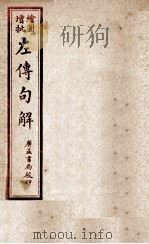 繪圖
增批
左傳句解
廣益書局校印